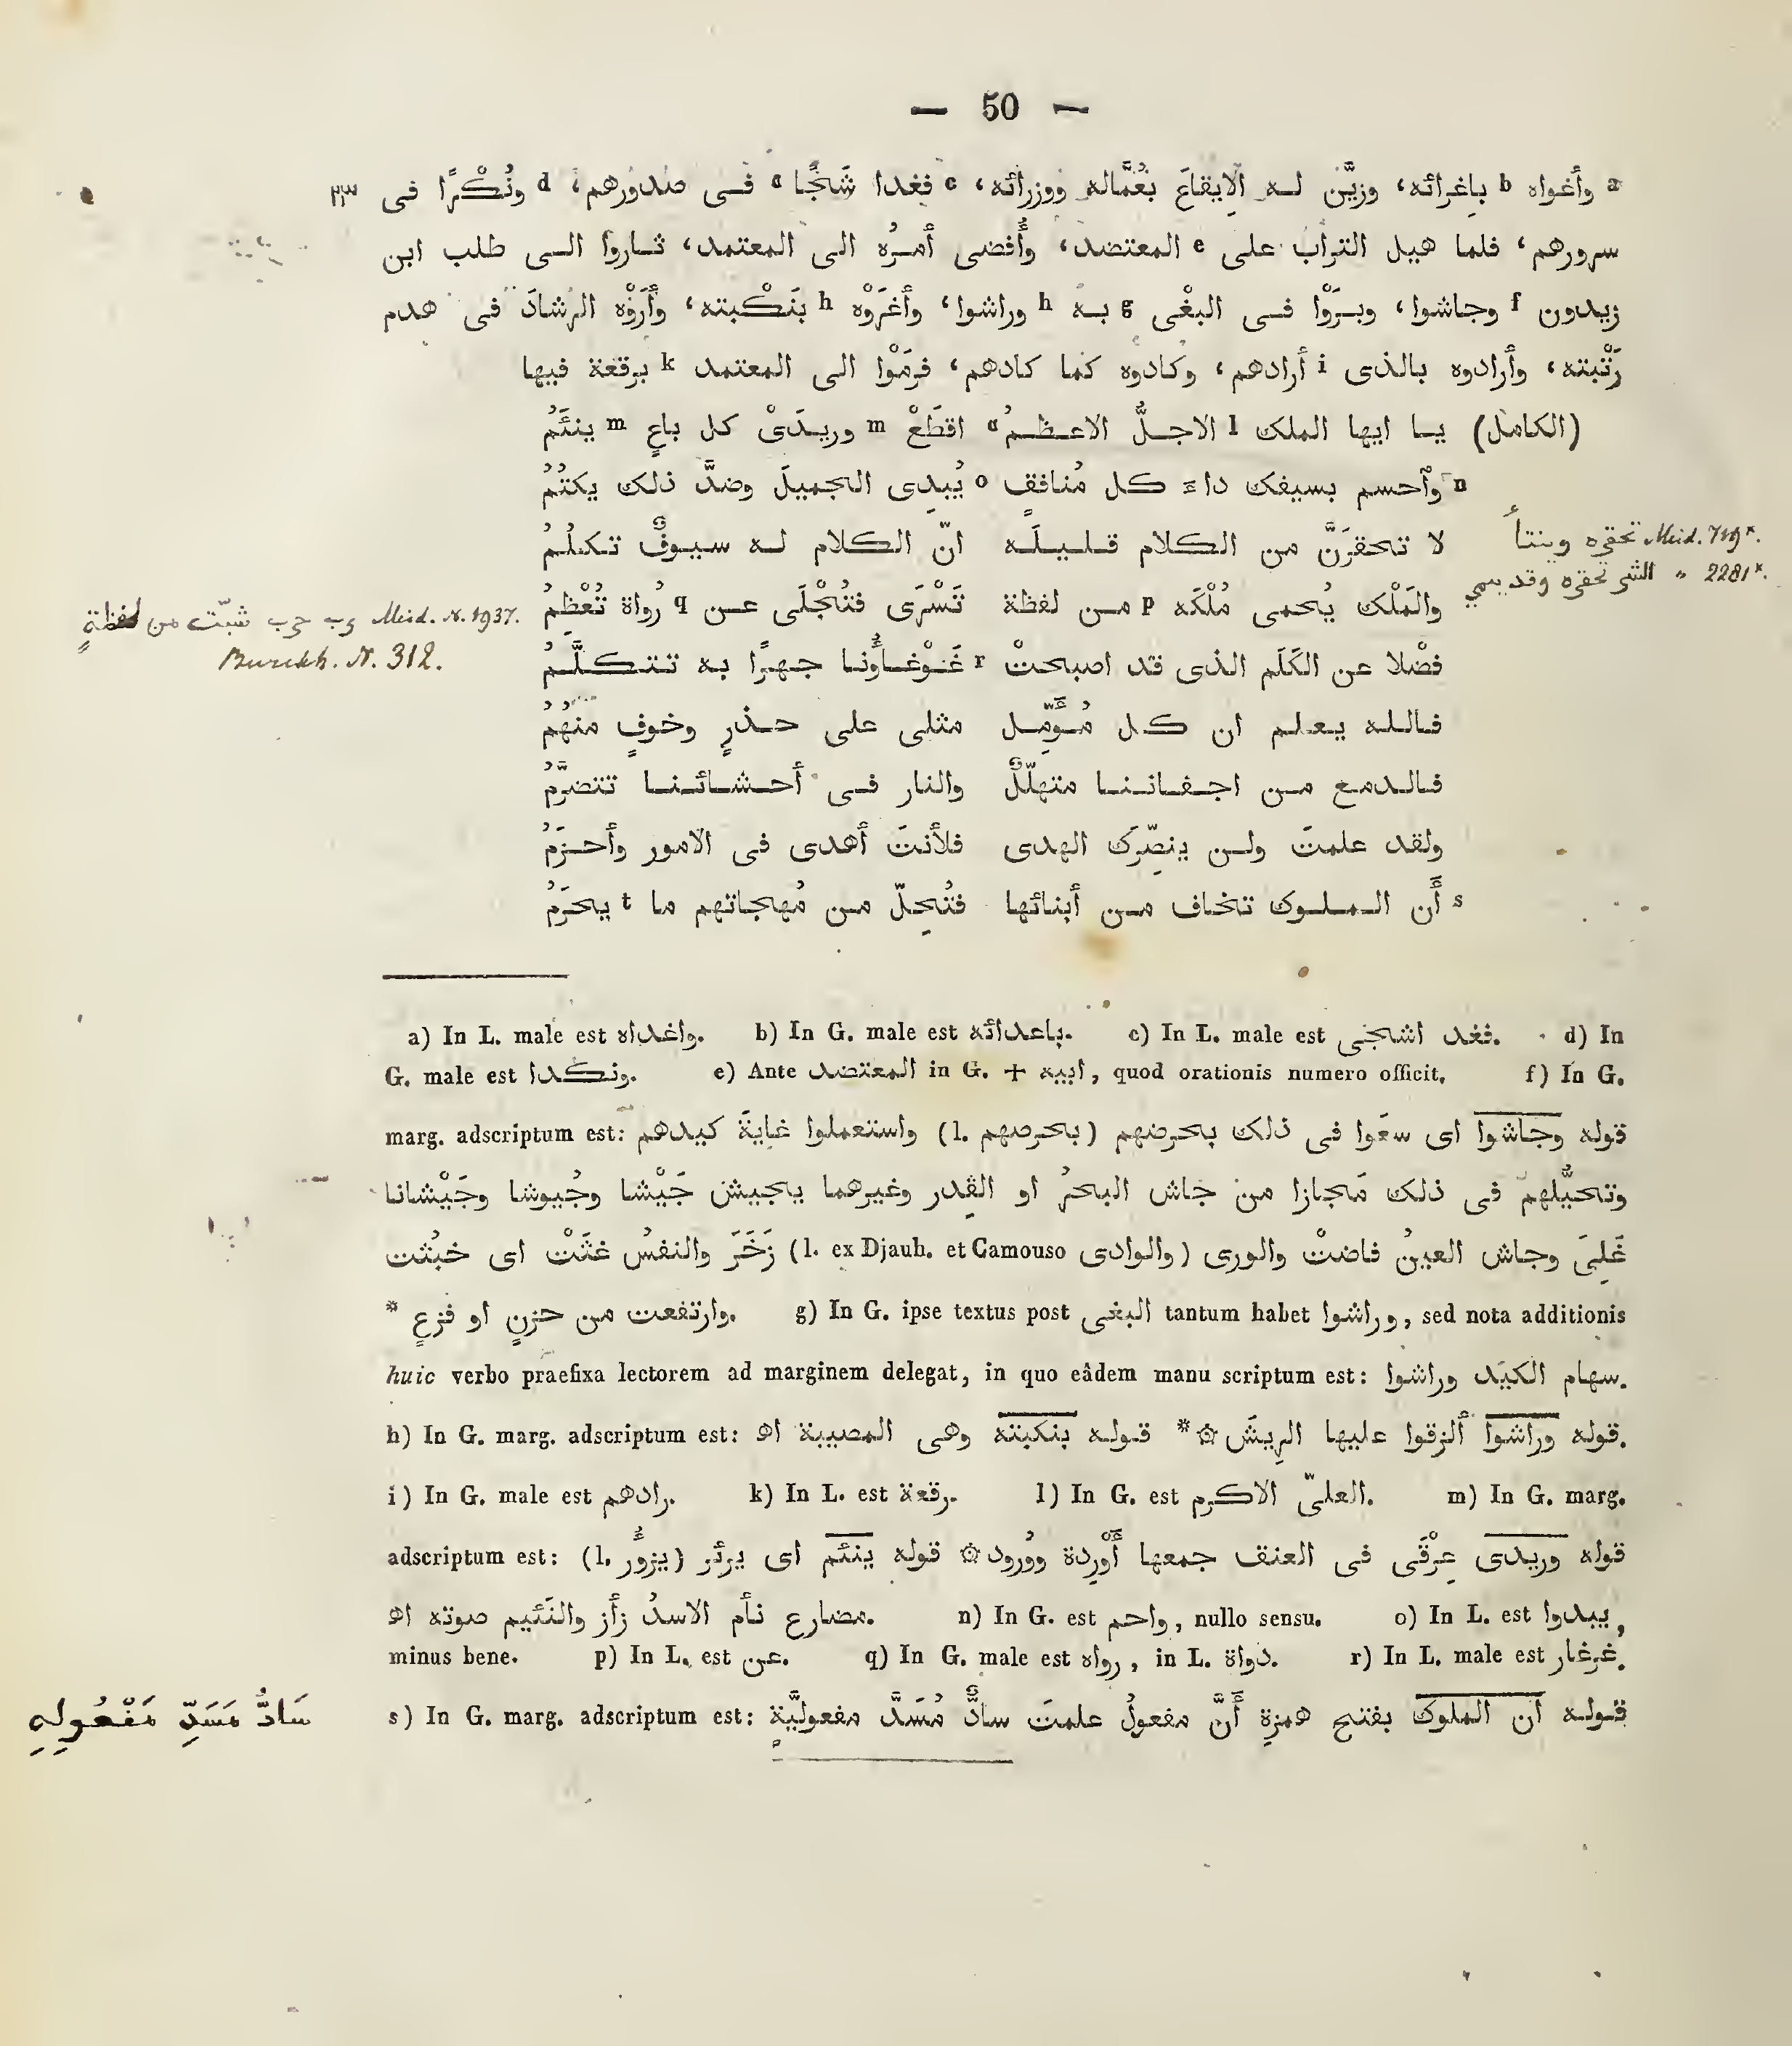 — 50 —
a وأَغواه b بإغرائه، وزيَّن له الإيقاعَ بعُمَّاله ووزرائه، c فغدا شَجًّا a فى صدورهم، d ونُكْرًا فى ٢٣
سرورهم، فلما هيل التراب على e المعتضد، وأُفضى أمرُه الى المعتمد، ثاروا الى طلب ابن
زيدون f وجاشوا، وبرَوْا فى البغْى g به h وراشوا، وأغرَوْه h بنَكْبته، وأَرَوْه الرشادَ فى هدم
رُتْبته، وأرادوه بالذى i أرادهم، وكادوه كما كادهم، فرمَوْا الى المعتمد k برقعة فيها
(الكامل) يا ايها الملك l الاجلُّ الاعظمُ a اقطَعْ m وريدَىْ كل باعٍ m ينئَمُ
n وٱحسم بسيفك داء كل مُنافقٍ o يُبدِى الجميلَ وضدَّ ذلك يكتُمُ
لا تحقرَنَّ من الكلام قليلَه انّ الكلام له سيوفٌ تكلُمُ
تحقره وينتأ Meid. 719*.
والمَلْك يُحمى مُلْكَه p من لفظة تَسْرَى فتُجْلَى عن q رُواة تُعْظِمُ
2281*. " الشر تحقره وقد ينمي
رب حرب شبّت من لفظةٍ Meid. N. 1937.
Burckh. N. 312.
فضْلا عن الكَلَم الذى قد اصبحتْ r غَوْغاؤُنا جهرًا به تتكلَّمُ
فالله يعلم ان كل مُؤَمِّل مثلى على حذرٍ وخوفٍ منهُمُ
فالدمع من اجفاننا متهلّلٌ والنار فى أحشائنا تتضرَّمُ
ولقد علمتَ ولن ينصّرَك الهدى فلأَنتَ أهدى فى الامور وأحزَمُ
s أَن الملوك تخاف من أبنائها فتُحِلّ من مُهجاتهم ما t يحرَمُ
a) In L. male est واغداه. b) In G. male est باعدائه. c) In L. male est فغد اشجى. d) In
G. male est ونكدا. e) Ante المعتضد in G. + ابيه, quod orationis numero officit. f) In G.
marg. adscriptum est: قوله وجاشوا اى سعَوا فى ذلك بحرضهم (l. بحرصهم) واستعملوا غايةَ كيدهم
وتحيُّلهم فى ذلك مَجازا من جاش البحرُ او القِدر وغيرهما يجيش جَيْشا وجُيوشا وجَيْشانا
غَلِىَ وجاش العينُ فاضتْ والورى (l. ex Djauh. et Camouso والوادى) زَخَرَ والنفسُ غثَتْ اى خبُثت
وارتفعت من حزنٍ او فزعٍ *. g) In G. ipse textus post البغى tantum habet وراشوا, sed nota additionis
huic verbo praefixa lectorem ad marginem delegat, in quo eâdem manu scriptum est: سهام الكيد وراشوا.
h) In G. marg. adscriptum est: قوله وراشوا ألزقوا عليها الرِيشَ ۞* قوله بنكبته وهى المصيبة اه.
i) In G. male est رادهم. k) In L. est رقعة. l) In G. est العلىّ الاكرم. m) In G. marg.
adscriptum est: قوله وريدى عِرْقَى فى العنق جمعها أَوْرِدة ووُرود۞ قوله ينئم اى يرئر (l. يزوُر)
مضارع نأم الاسدُ زأَر والنَئيم صوته اه. n) In G. est واحم, nullo sensu. o) In L. est يبدوا,
minus bene. p) In L. est عن. q) In G. male est رواه, in L. دواة. r) In L. male est غرغار.
s) In G. marg. adscriptum est: قوله ان الملوك بفتح همزةِ أَنَّ مفعولُ علمتَ سادٌّ مُسَدَّ مفعوليَّةٍ
سَادٌّ مَسَدِّ مَفْعُولِهِ